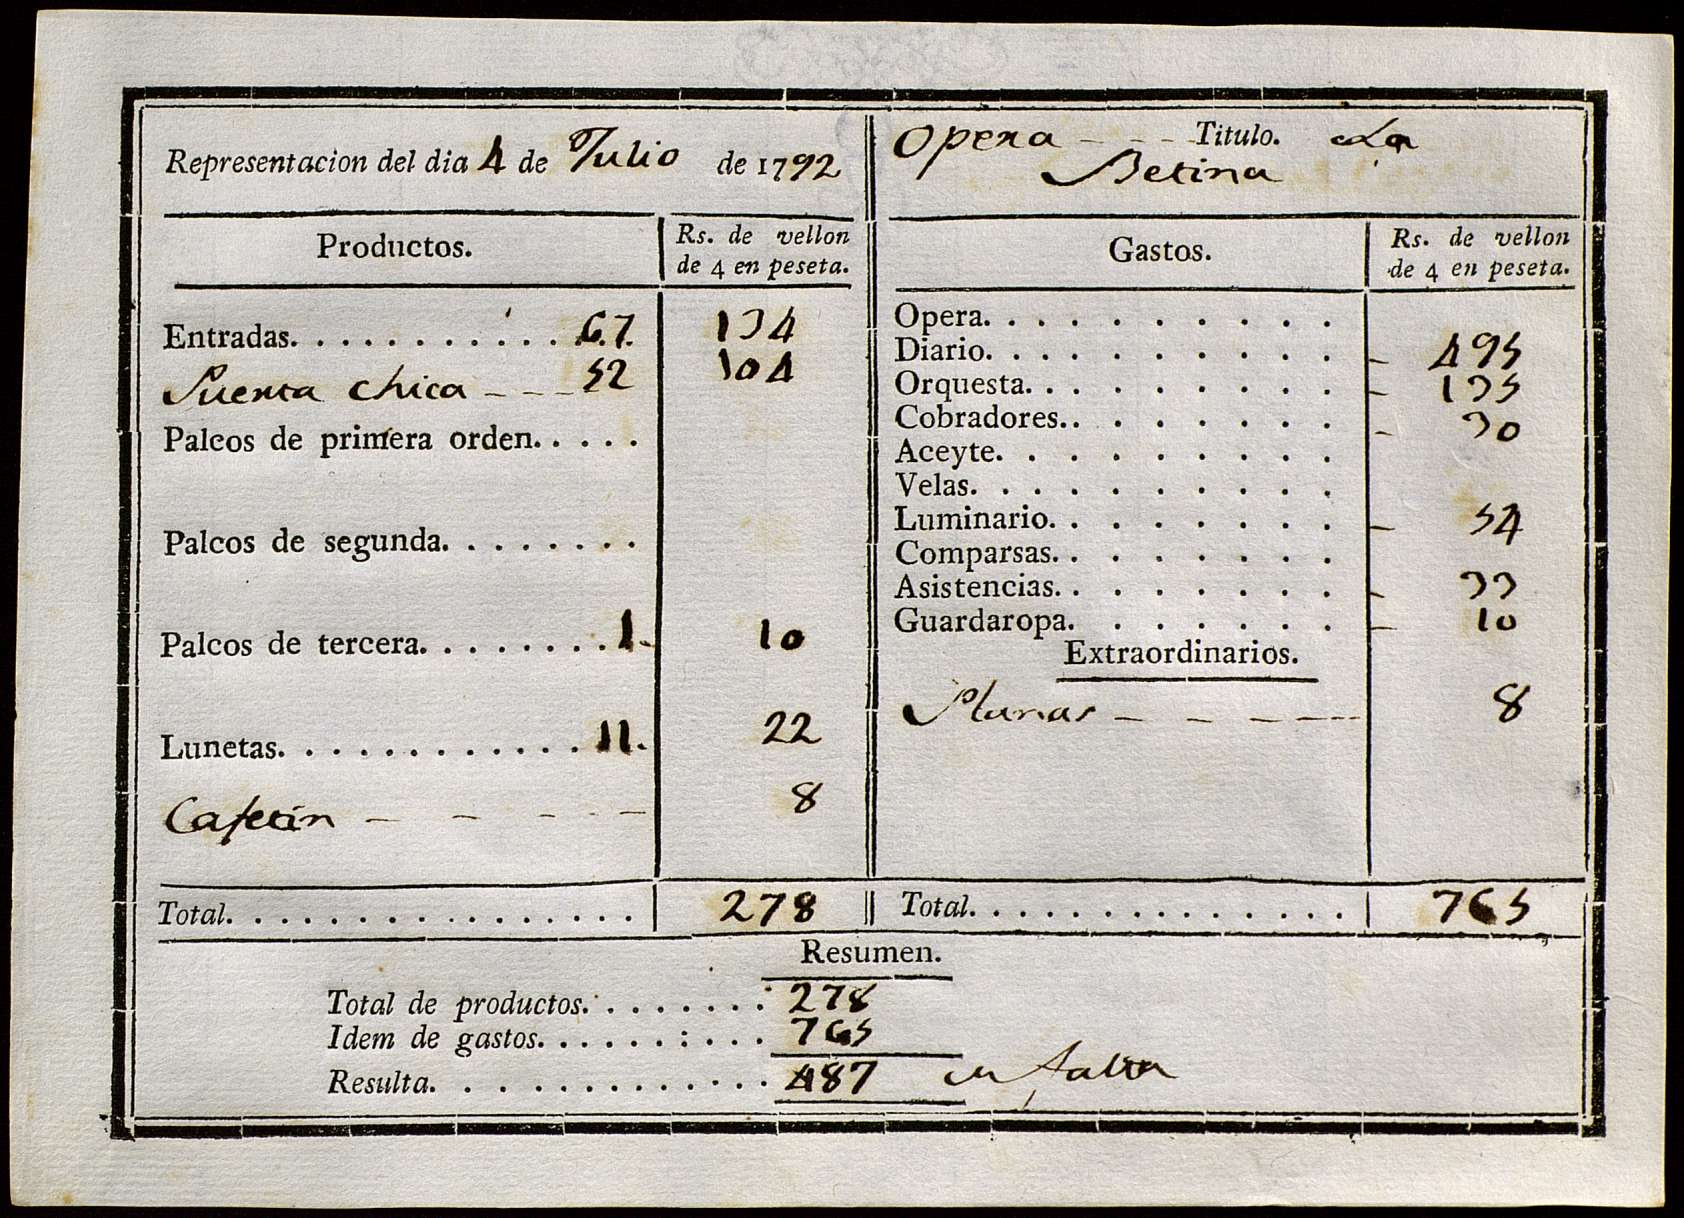 Representacion del dia 4 de Julio de 1792
Opera - - - Titulo. La
Betina
Productos. Rs. de vellon
de 4 en peseta.
Entradas. . . . . . . . . . . . 67. 134
Puerta chica - - - 52 104
Palcos de primera orden. . . . .
Palcos de segunda. . . . . . . .
Palcos de tercera. . . . . . . . 1. 10
Lunetas. . . . . . . . . . . . . 11. 22
Cafetin - - - - 8
Total. . . . . . . . . . . . . . . . 278
Gastos. Rs. de vellon
de 4 en peseta.
Opera. . . . . . . . . .
Diario. . . . . . . . . . - 495
Orquesta. . . . . . . . . - 135
Cobradores. . . . . . . . - 30
Aceyte. . . . . . . . . .
Velas. . . . . . . . . .
Luminario. . . . . . . . - 54
Comparsas. . . . . . . .
Asistencias. . . . . . . . - 33
Guardaropa. . . . . . . - 10
Extraordinarios.
Planas - - - - - 8
Total. . . . . . . . . . . . . . 765
Resumen.
Total de productos. . . . . . . . 278
Idem de gastos. . . . . . : . . . 765
Resulta. . . . . . . . . . . . . 487 en falta